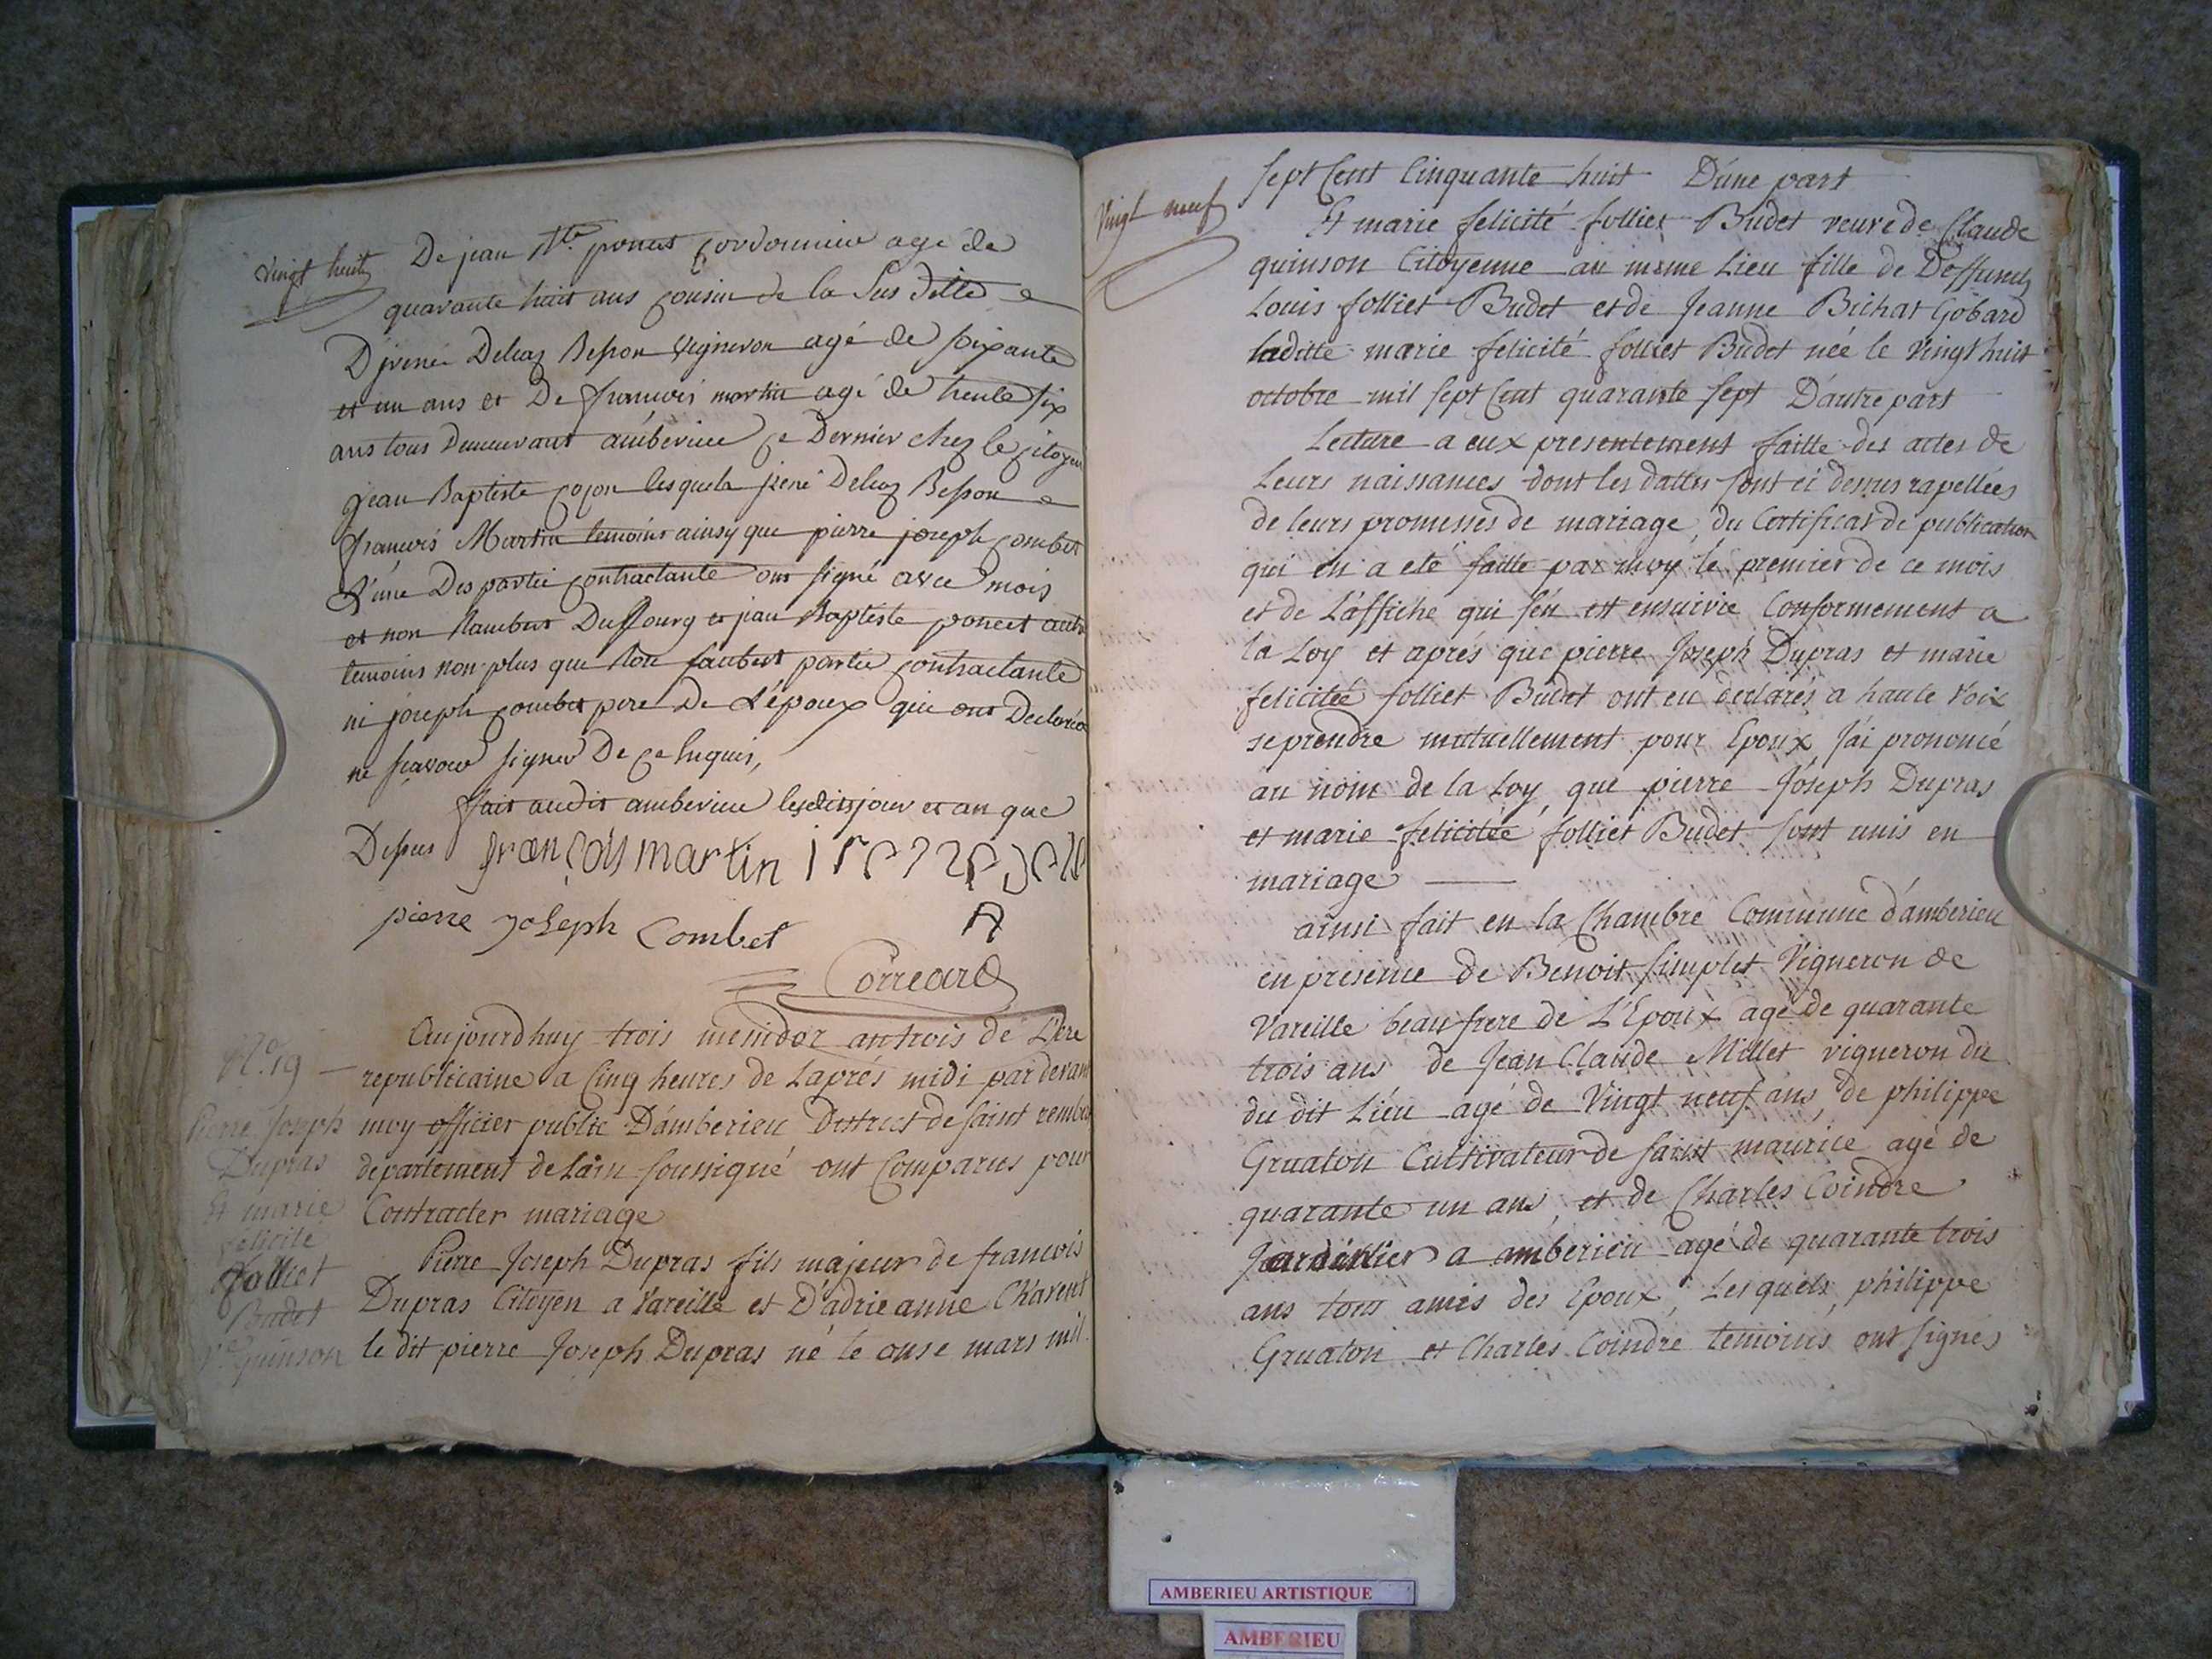 vingt huit
De jean Bte poncet Cordonnier agé de
quarante huit ans cousin de la Sus ditte
D'jrené Delcaz Besson Vigneron agé de soixante
et un ans et De françois martin agé de trente six
ans tous Demeurant amberieu ce Dernier chez le citoyen
jean Baptiste lesquels jrené Delcaz Besson
françois Martin temoins ainsy que pierre joseph combet
L'une Des partie contractante ont signé avec mois
et non Dufourg et jean Baptiste poncet autre
temoins non plus que partie contractante
ni joseph combet pere De L'époux qui ont Declaréé
ne scavoir signer De ce Enquis,
fait audit amberieu lesdits jour et an que
Dessus françois martin
pierre joseph Combet
Correard
N.º 19
Pierre Joseph
Dupras
Et marie
felicité
folliet
Budet
Ve quinson
Aujourdhuy trois messidor an trois de L'ere
republicaine a Cinq heures de L'aprés midi par devant
moy officier public D'amberieu District de saint rembert
departement de Lain soussigné ont Comparus pour
Contracter mariage
Pierre Joseph Dupras fils majeur de francois
Dupras Citoyen a Vareille et D'adrieanne Charent
le dit pierre Joseph Dupras né le onse mars mil
Vingt neuf
sept Cent Cinquante huit D'une part
Et marie felicité folliet Budet veuve de Claude
quinson Citoyenne au même Lieu fille de Deffunts
Louis folliet Budet et de Jeanne Bichat Gobard
laditte marie felicité folliet Budet née le Vingt huit
octobre mil sept Cent quarante sept D'autre part
Lecture a eux presentement faitte des actes de
Leurs naissances dont les dattes sont ci dessus rapellées
de leurs promesses de mariage, du Certificat de publication
qui en a eté faitte par moy le premier de ce mois
et de L'affiche qui s'en est ensuivie Conformement a
la Loy et aprés que pierre Joseph Dupras et marie
felicitée folliet Budet ont eu declarés a haute Voix
se prendre mutuellement pour Epoux J'ai prononcé
au nom de la Loy, que pierre Joseph Dupras
et marie felicitée folliet Budet sont unis en
mariage
ainsi fait en la Chambre Commune d'amberieu
en presence de Benoit simplet Vigneron de
Vareille beau frere de L'Epoux agé de quarante
trois ans de Jean Claude Millet vigneron du
du dit Lieu agé de Vingt neuf ans, de philippe
Gruaton Cultivateur de saint maurice agé de
quarante un ans, et de Charles Coindre
Jardinier a amberieu agé de quarante trois
ans tous amis des Epoux, Lesquels, philippe
Gruaton et Charles Coindre temoins ont signés
AMBERIEU ARTISTIQUE
AMBERIEU